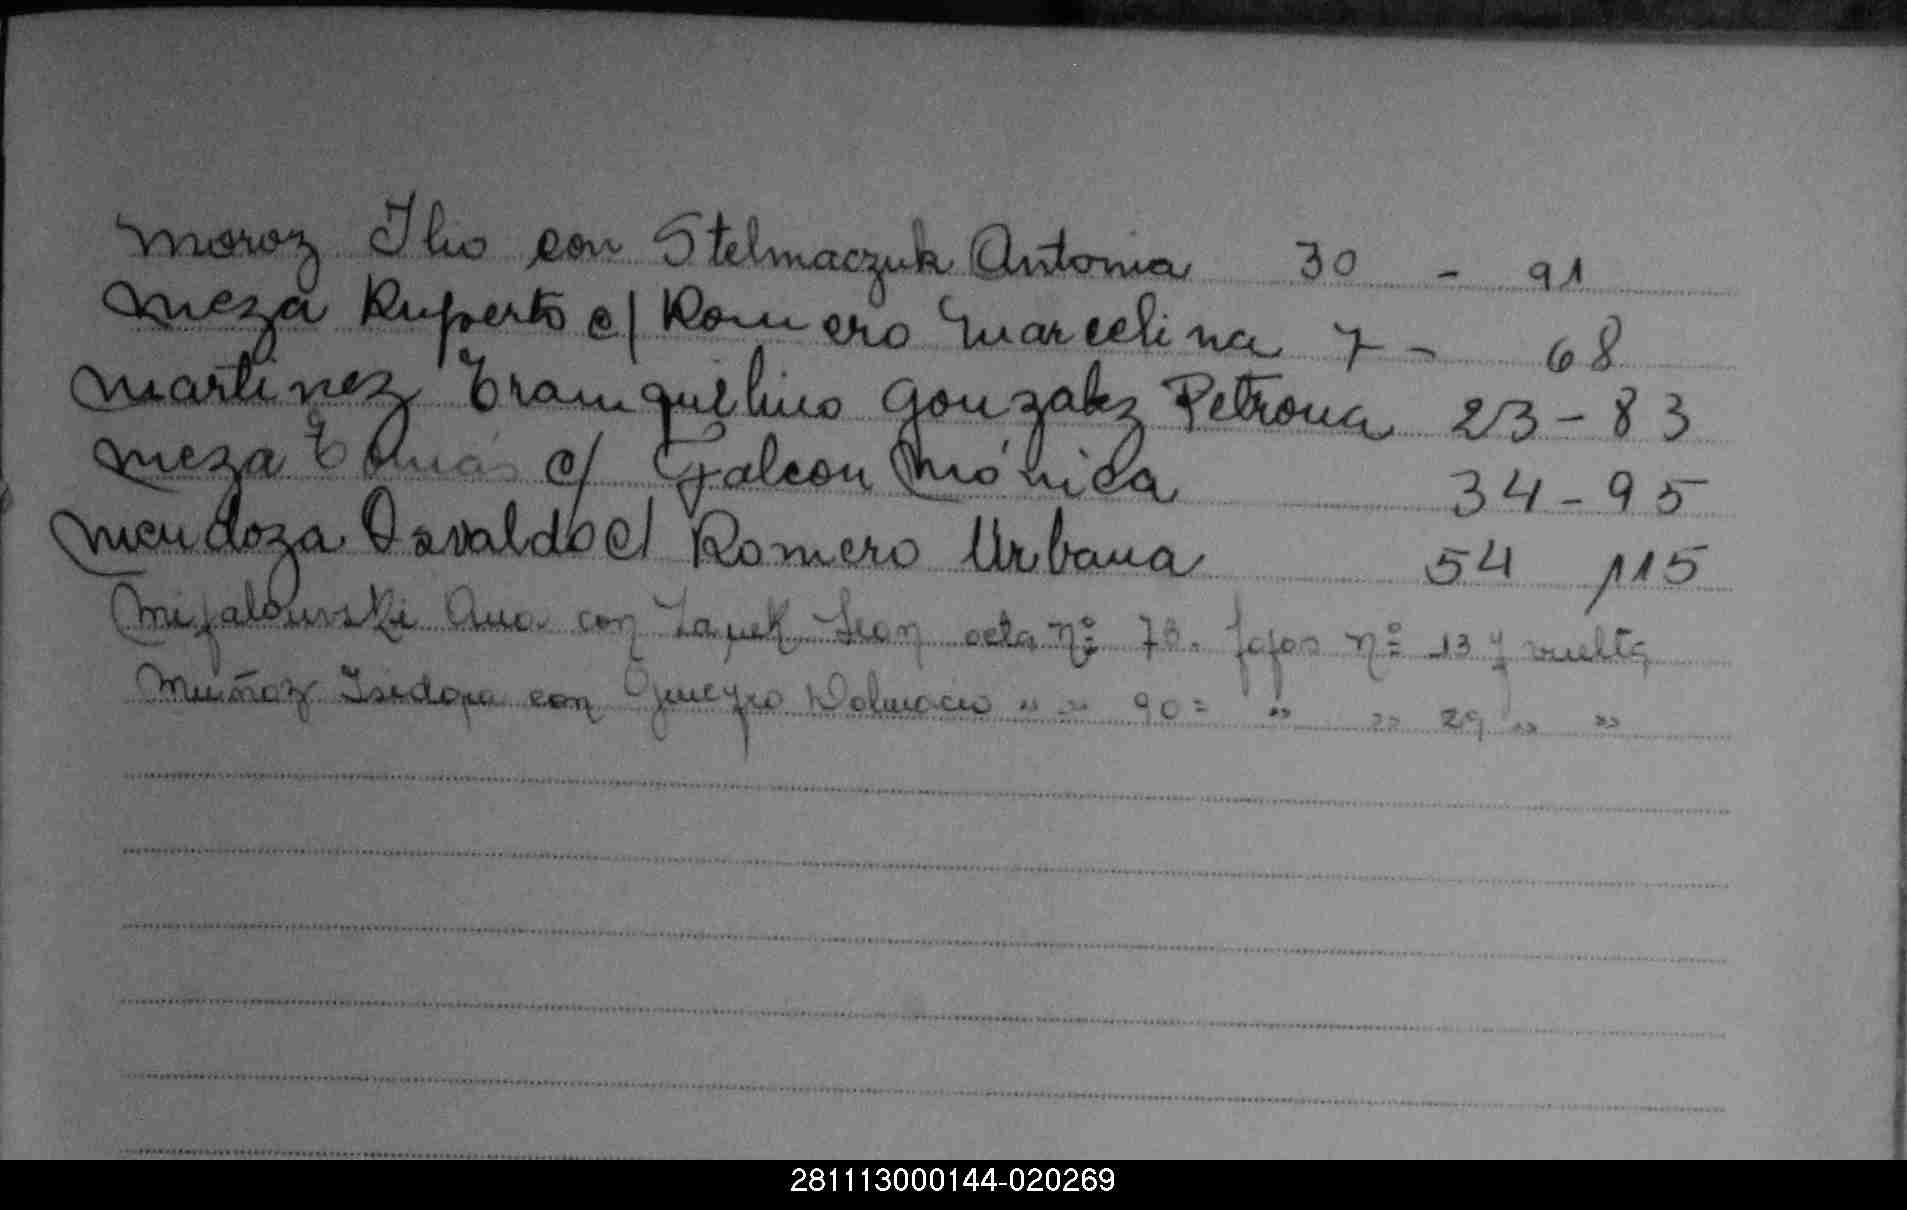 Moroz Ilio con Stelmaczuk Antonia 30 - 91
Meza Ruperto c/ Romero Marcelina 7 - 68
Martinez Tranquilino Gonzalez Petrona 23 - 83
Meza Tomás c/ Falcon Mónica 34 - 95
Mendoza Osvaldo c/ Romero Urbana 54 115
Mijalowski Ana con Leon acta nº 73. fojas nº 13 y vuelta
Muñoz Isidora con Dalmacio " " 90 = " " 29 " "
281113000144-020269